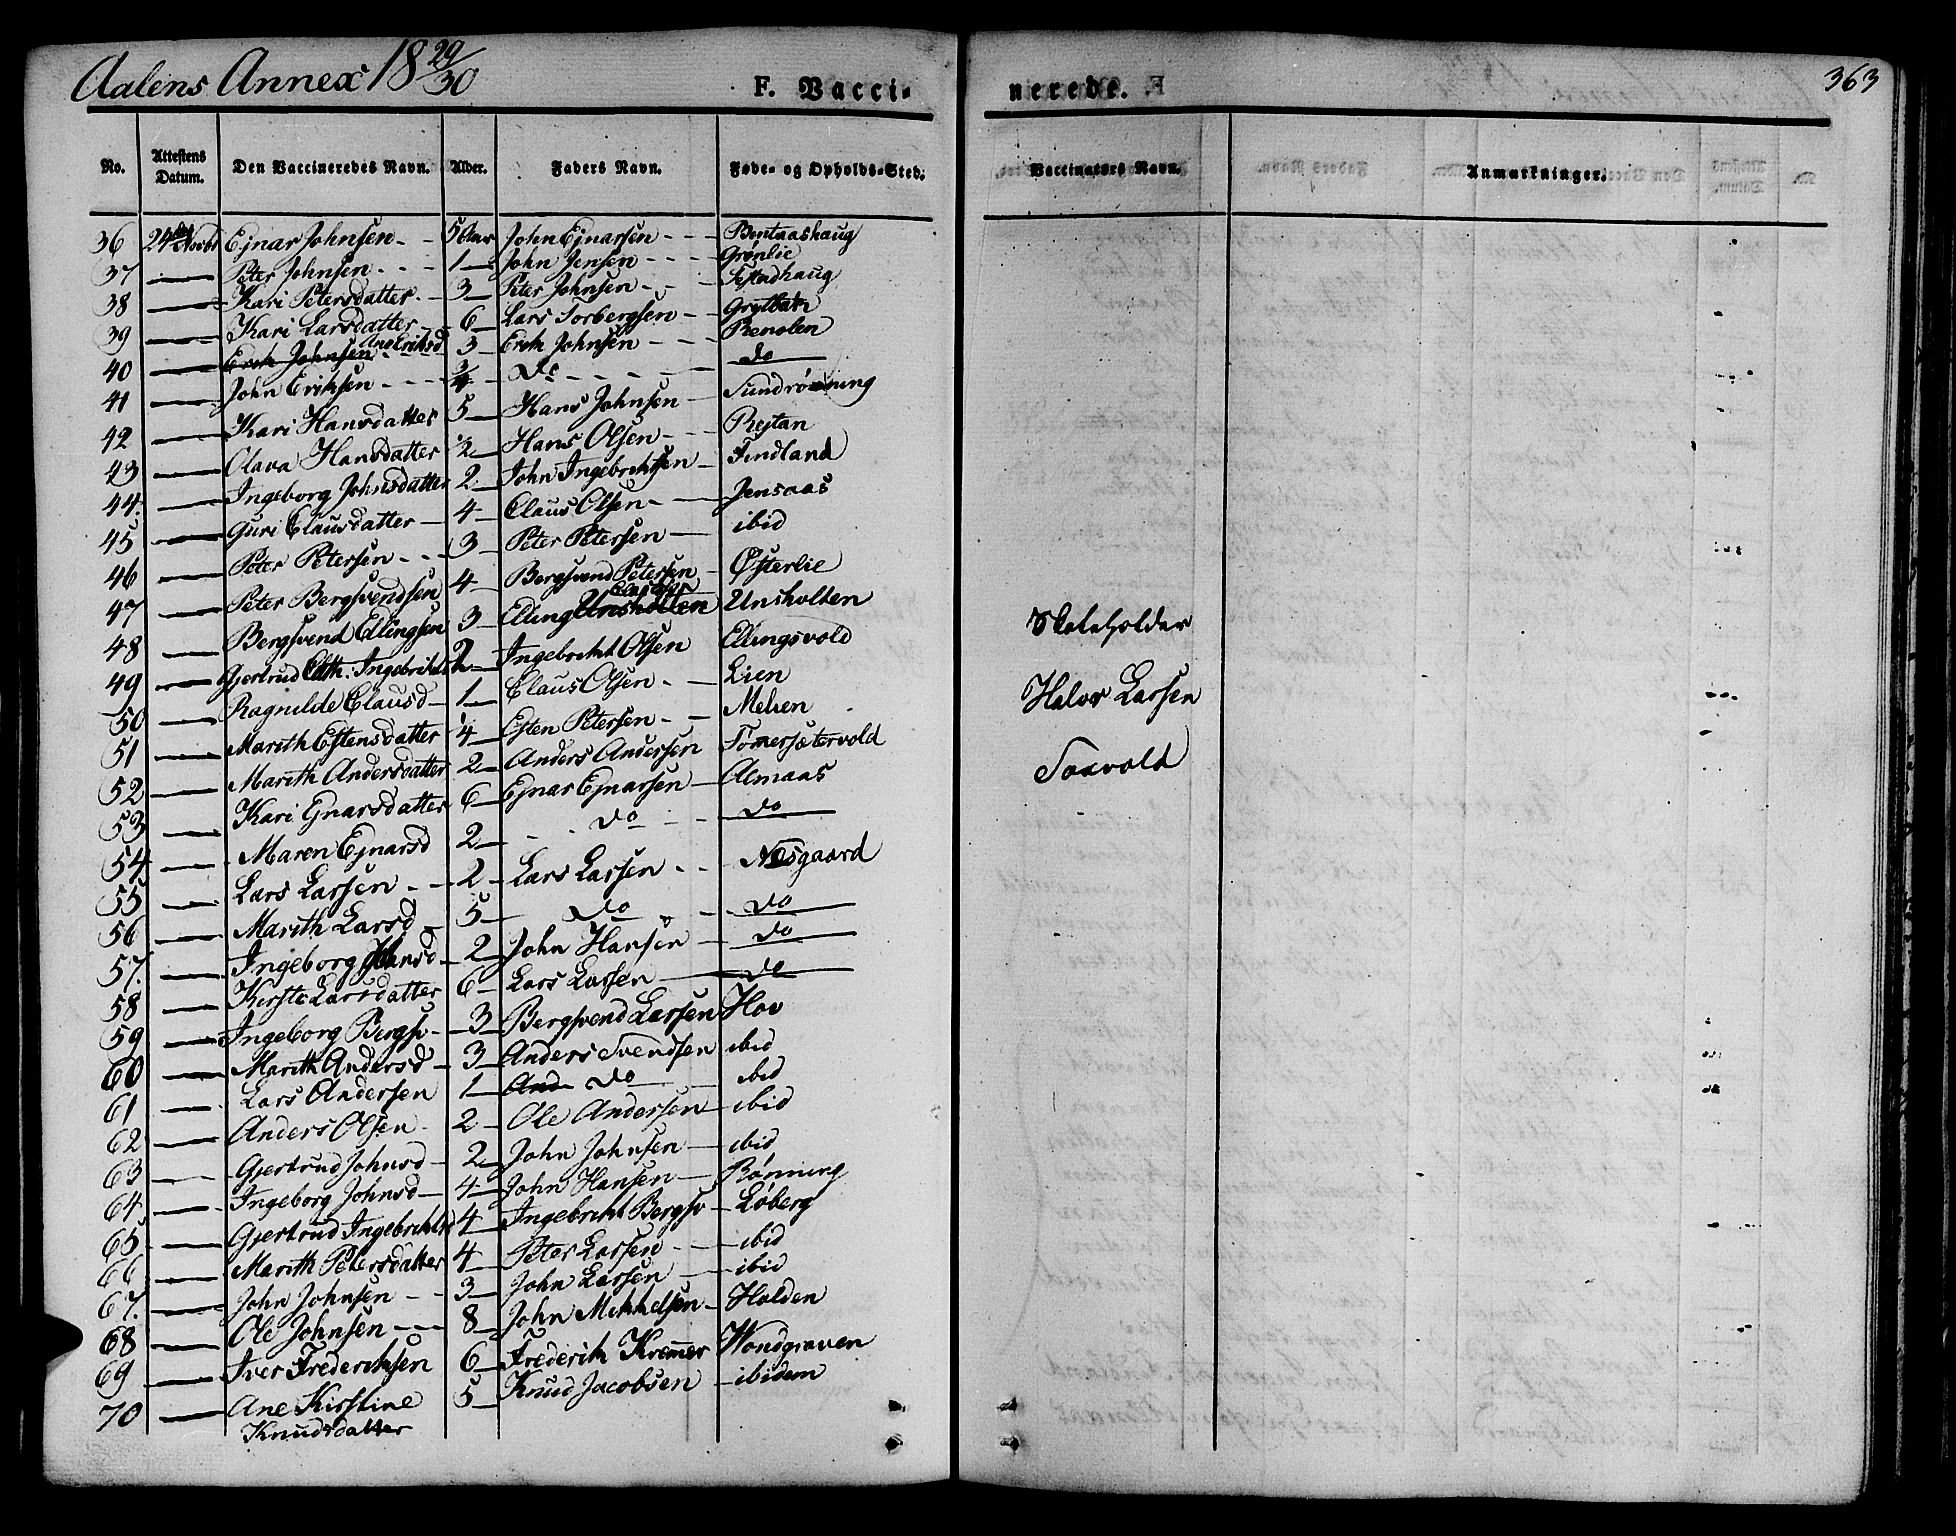 Aalens Annex 18 29/30
F. Vacci-
nerede.
363
No. | Attestens Datum. | Den Vaccineredes Navn. | Alder. | Faders Navn. | Føde- og Opholds-Sted. | Vaccinators Navn. | Anmærkninger.
36 24de Novbr Ejnar Johnsen 5 Aar John Ejnarsen Bentaashaug
37 — Peter Johnsen 1 John Jensen Grønlie
38 — Kari Petersdatter 3 Peter Johnsen
39 — Kari Larsdatter 6 Lars Torbergsen Grytbak
40 — Erik Johnsen Ane Eriksd 3 Erik Johnsen Renolen
41 — John Eriksen 3/4 Do do
42 — Kari Hansdatter 5 Hans Johnsen Sundrønning
43 — Olava Hansdatter 1/2 Hans Olsen Rejtan
44. — Ingeborg Johnsdatter 2 John Ingebrichtsen Findland
45 — Guri Clausdatter 4 Claus Olsen Jensaas
46 — Peter Petersen 3 Peter Petersen ibid
47 — Peter Bergsvendsen 4 Bergsvend Petersen Østerlie
48 — Bergsvend Ellingsen 3 Elling Unsholten Unsholten
49 — Gjertrud Cath: Ingebrichtsd 2 Ingebricht Olsen Ellingsvold
50 — Ragnilde Clausd 1 Claus Olsen Lien
51 — Marith Estensdatter 1/4 Esten Petersen Melien
52 — Marith Andersdatter 2 Anders Andersen Tømersætervold
53 — Kari Ejnarsdatter 6 Ejnar Ejnarsen Almaas
54 — Maren Ejnarsd 2 do do
55 — Lars Larsen 2 Lars Larsen Næsgaard
56 — Marith Larsd 5 do do
57. — Ingeborg Johnsd 2 John Hansen do
58 — Kirsti Larsdatter 6 Lars Larsen do
59 — Ingeborg Bergsv 3 Bergsvend Larsen Hov
60 — Marith Andersd 3 Anders Svendsen ibid
61 — Lars Andersen 1 And do ibid
62 — Anders Olsen 2 Ole Andersen ibid
63 — Gjertrud Johnsd 2 John Johnsen ibid
64 — Ingeborg Johnsd 4 John Hansen Rønning
65 — Gjertrud Ingebrichtsd 4 Ingebricht Bergsv Løberg
66 — Marith Petersdatter 4 Peter Larsen ibid
67. — John Johnsen 3 John Larsen ibid
68 — Ole Johnsen 8 John Mikkelsen Holden
69 — Iver Frederiksen 6 Frederik Kremer Vondgraven
70 — Ane Kirstine 5 Knud Jacobsen ibidem
Knudsdatter
Skoleholder
Halvor Larsen
Saxvold